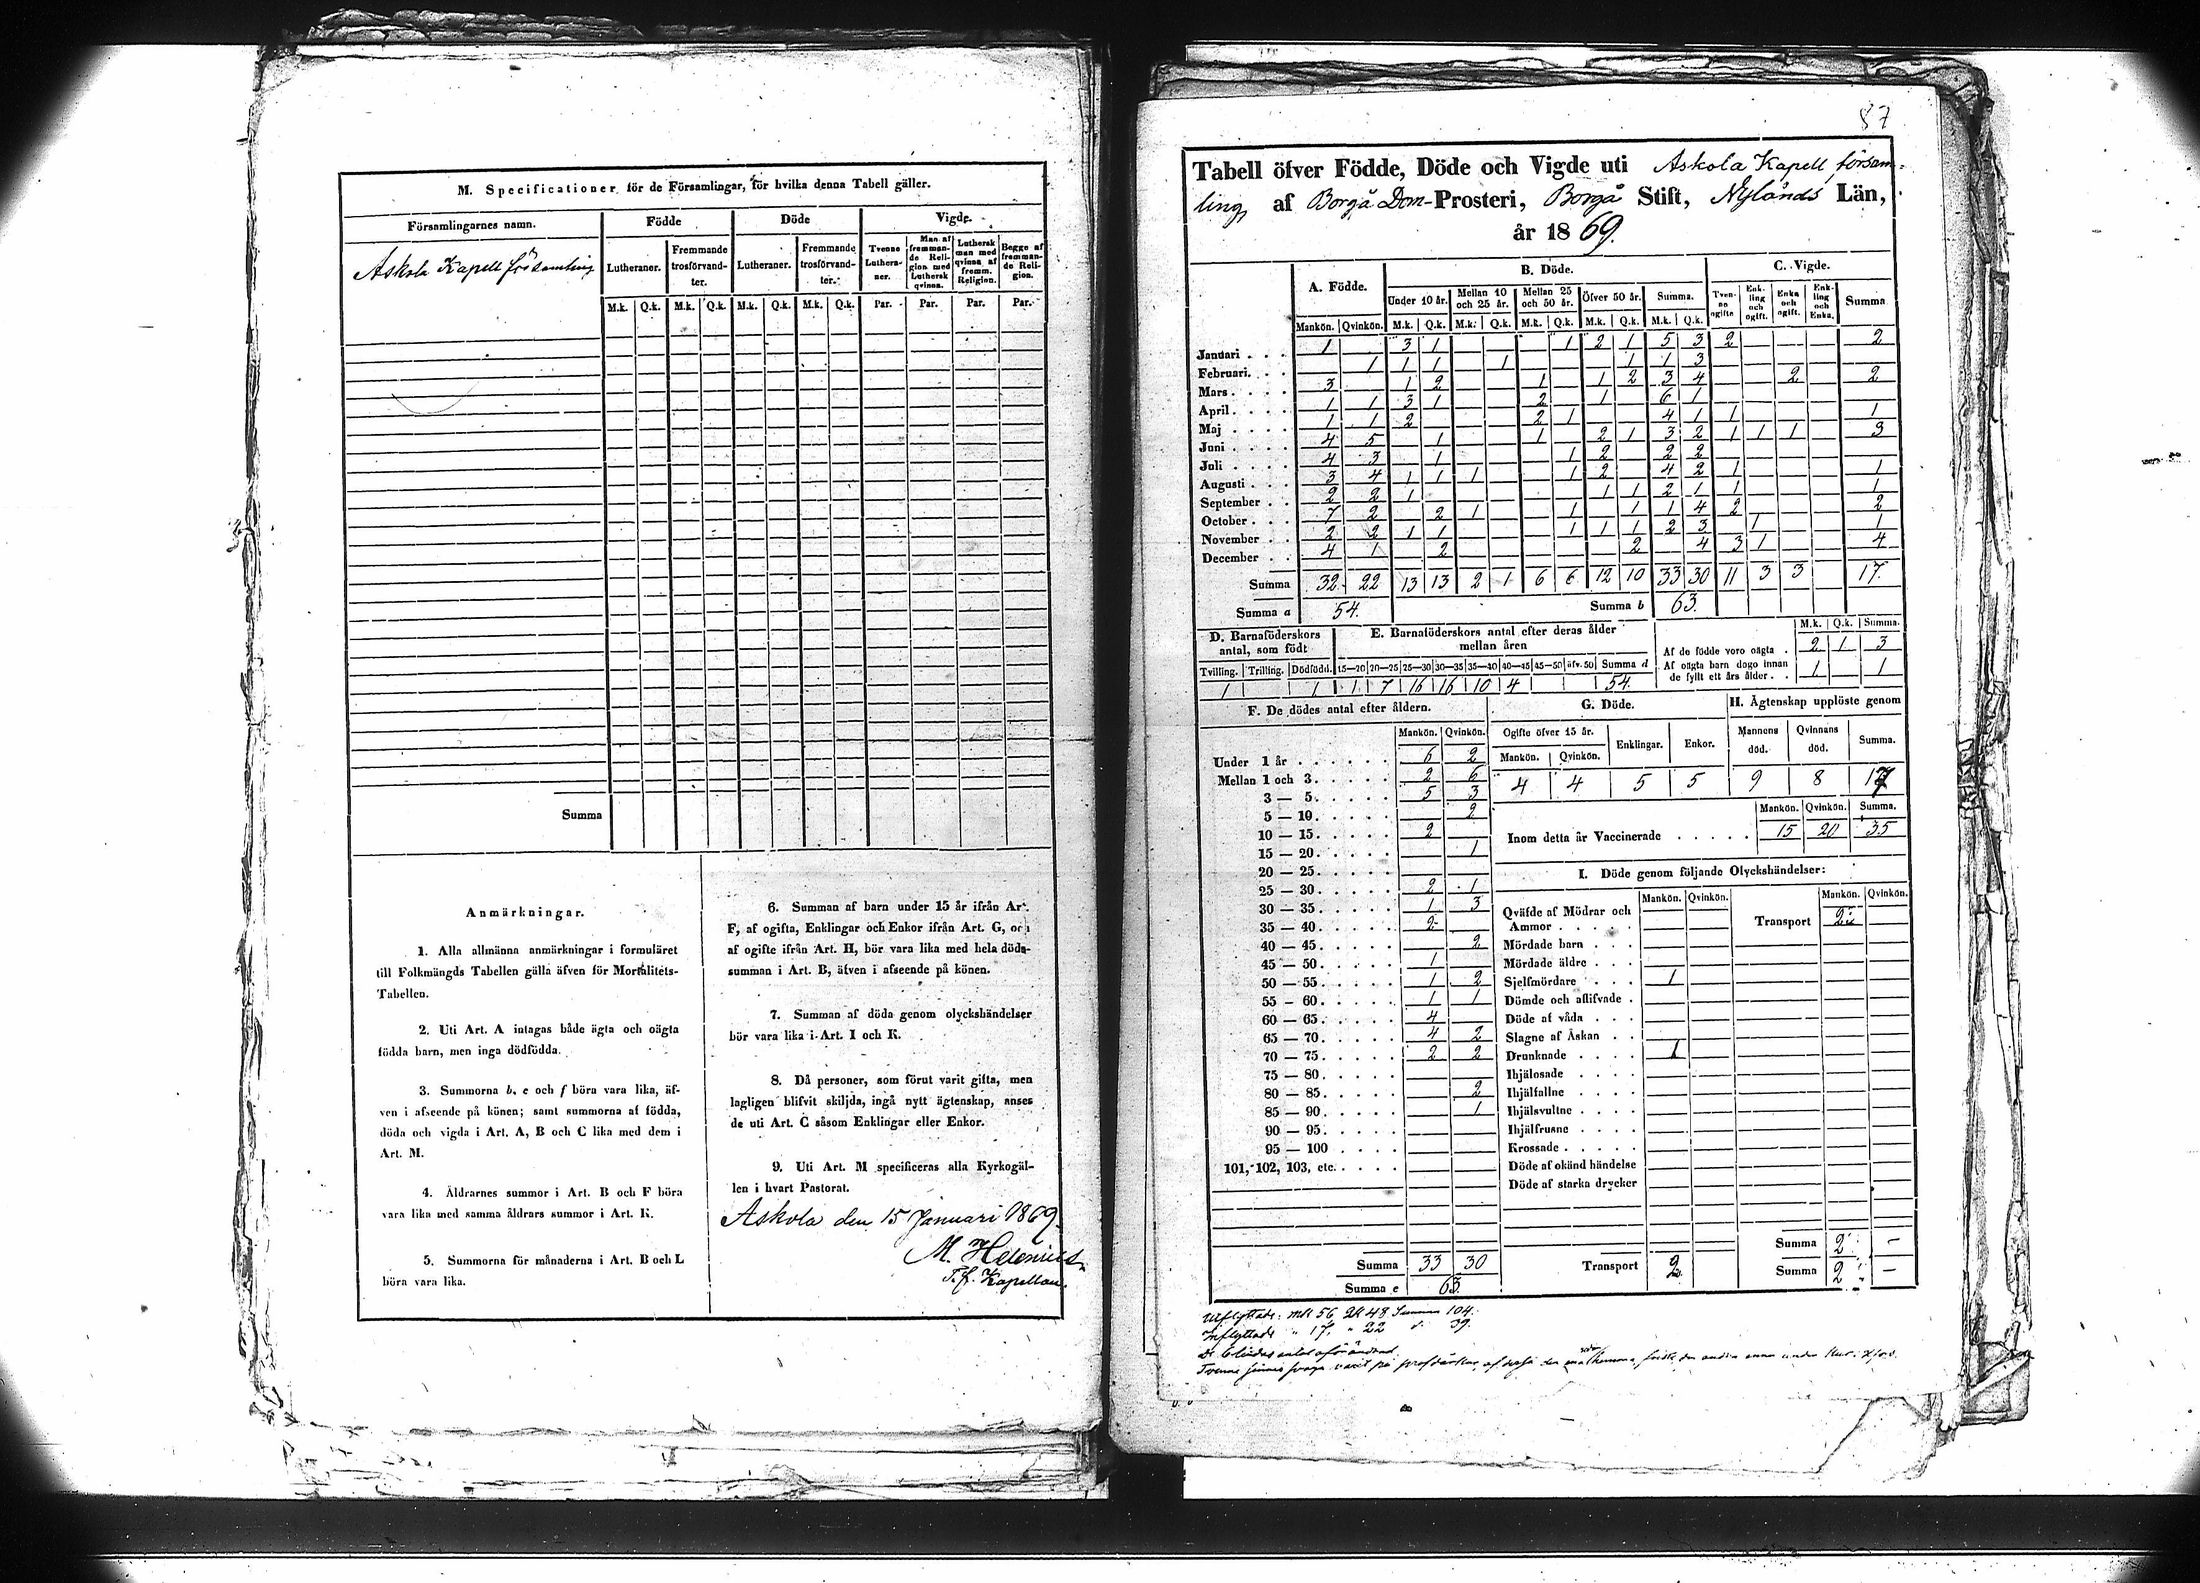 M. Specificationer för de Församlingar, för hvilka denna Tabell gäller.
Församlingarnes namn. Födde Döde Vigde.
Lutheraner. Fremmande trosförvandter. Lutheraner. Fremmande trosförvandter. Tvenne Lutheraner. Man af fremmande Religion med Luthersk qvinna. Luthersk man med qvinna af fremm. Religion. Begge af fremmande Religion.
M.k. Q.k. M.k. Q.k. M.k. Q.k. M.k. Q.k. Par. Par. Par. Par.
Askola Kapell församling
Summa
Anmärkningar.
1. Alla allmänna anmärkningar i formuläret
till Folkmängds Tabellen gälla äfven för Mortalitets-
Tabellen.
2. Uti Art. A intagas både ägta och oägta
födda barn, men inga dödfödda.
3. Summorna b, e och f böra vara lika, äf-
ven i afseende på könen; samt summorna af födda,
döda och vigda i Art. A, B och C lika med dem i
Art. M.
4. Åldrarnes summor i Art. B och F böra
vara lika med samma åldrars summor i Art. K.
5. Summorna för månaderna i Art. B och L
böra vara lika.
6. Summan af barn under 15 år ifrån Art.
F, af ogifta, Enklingar och Enkor ifrån Art. G, och
af ogifte ifrån Art. H, bör vara lika med hela döds-
summan i Art. B, äfven i afseende på könen.
7. Summan af döda genom olyckshändelser
bör vara lika i Art. I och K.
8. Då personer, som förut varit gifta, men
lagligen blifvit skiljda, ingå nytt ägtenskap, anses
de uti Art. C såsom Enklingar eller Enkor.
9. Uti Art. M specificeras alla Kyrkogäl-
len i hvart Pastorat.
Askola den 15 Januari 1869.
M. Helenius
T. f. Kapellan.
87
Tabell öfver Födde, Döde och Vigde uti Askola Kapell försam-
ling, af Borgå Dom-Prosteri, Borgå Stift, Nylands Län,
år 1869.
A. Födde. B. Döde. C. Vigde.
Under 10 år. Mellan 10 och 25 år. Mellan 25 och 50 år. Öfver 50 år. Summa. Tvenne ogifte Enkling och ogift. Enka och ogift. Enkling och Enka. Summa
Mankön. Qvinkön. M.k. Q.k. M.k. Q.k. M.k. Q.k. M.k. Q.k. M.k. Q.k.
Januari . . . 1 3 1 1 2 1 5 3 2 2
Februari. . . 1 1 1 1 1 1 3
Mars . . . . 3 1 2 1 1 2 3 4 2 2
April . . . . 1 1 3 1 2 1 6 1
Maj . . . . 1 1 2 2 1 4 1 1 1
Juni . . . . 4 5 1 1 2 1 3 2 1 1 1 3
Juli . . . . 4 3 1 1 2 2 2
Augusti . . . 3 4 1 1 1 1 2 4 2 1 1
September . . . 2 2 1 1 1 2 1 1 1
October . . . 7 2 2 1 1 1 1 4 2 2
November . . 2 2 1 1 1 1 1 2 3 1 1
December . . 4 1 2 2 4 3 1 4
Summa 32 22 13 13 2 1 6 6 12 10 33 30 11 3 3 17.
Summa a 54. Summa b 63.
D. Barnaföderskors antal, som födt E. Barnaföderskors antal efter deras ålder mellan åren
Tvilling. Trilling. Dödfödd. 15—20 20—25 25—30 30—35 35—40 40—45 45—50 öfv. 50 Summa d
1 1 1 7 16 16 10 4 54.
M.k. Q.k. Summa.
Af de födde voro oägta . 2 1 3
Af oägta barn dogo innan de fyllt ett års ålder . . 1 1
F. De dödes antal efter åldern.
Mankön. Qvinkön.
Under 1 år . . . . . . 6 2
Mellan 1 och 3. . . . . 2 6
3 — 5. . . . . 5 3
5 — 10. . . . . 2
10 — 15. . . . . 2
15 — 20. . . . . 1
20 — 25. . . . .
25 — 30. . . . . 2 1
30 — 35. . . . . 1 3
35 — 40. . . . . 2
40 — 45. . . . . 2
45 — 50. . . . . 1
50 — 55. . . . . 1 2
55 — 60. . . . . 1 1
60 — 65. . . . . 4
65 — 70. . . . . 4 2
70 — 75. . . . . 2 2
75 — 80. . . . .
80 — 85. . . . . 2
85 — 90. . . . . 1
90 — 95. . . . .
95 — 100 . . . .
101, 102, 103, etc. . . . .
Summa 33 30
Summa e 63.
G. Döde. H. Ägtenskap upplöste genom
Ogifte öfver 15 år. Enklingar. Enkor. Mannens död. Qvinnans död. Summa.
Mankön. Qvinkön.
4 4 5 5 9 8 17
Mankön. Qvinkön. Summa.
Inom detta år Vaccinerade . . . . . 15 20 35
I. Döde genom följande Olyckshändelser:
Mankön. Qvinkön. Mankön. Qvinkön.
Qväfde af Mödrar och Ammor . . . . . Transport 2
Mördade barn . . .
Mördade äldre . . .
Sjelfmördare . . . 1
Dömde och aflifvade .
Döde af våda . . .
Slagne af Åskan . .
Drunknade . . . . 1
Ihjälosade . . . .
Ihjälfallne . . . .
Ihjälsvultne . . . .
Ihjälfrusne . . . .
Krossade . . . . .
Döde af okänd händelse
Döde af starka drycker
Summa 2 –
Transport 2. Summa 2 –
Utflyttade: mk 56 Qk 48 Summa 104.
Inflyttade " 17. " 22 39.